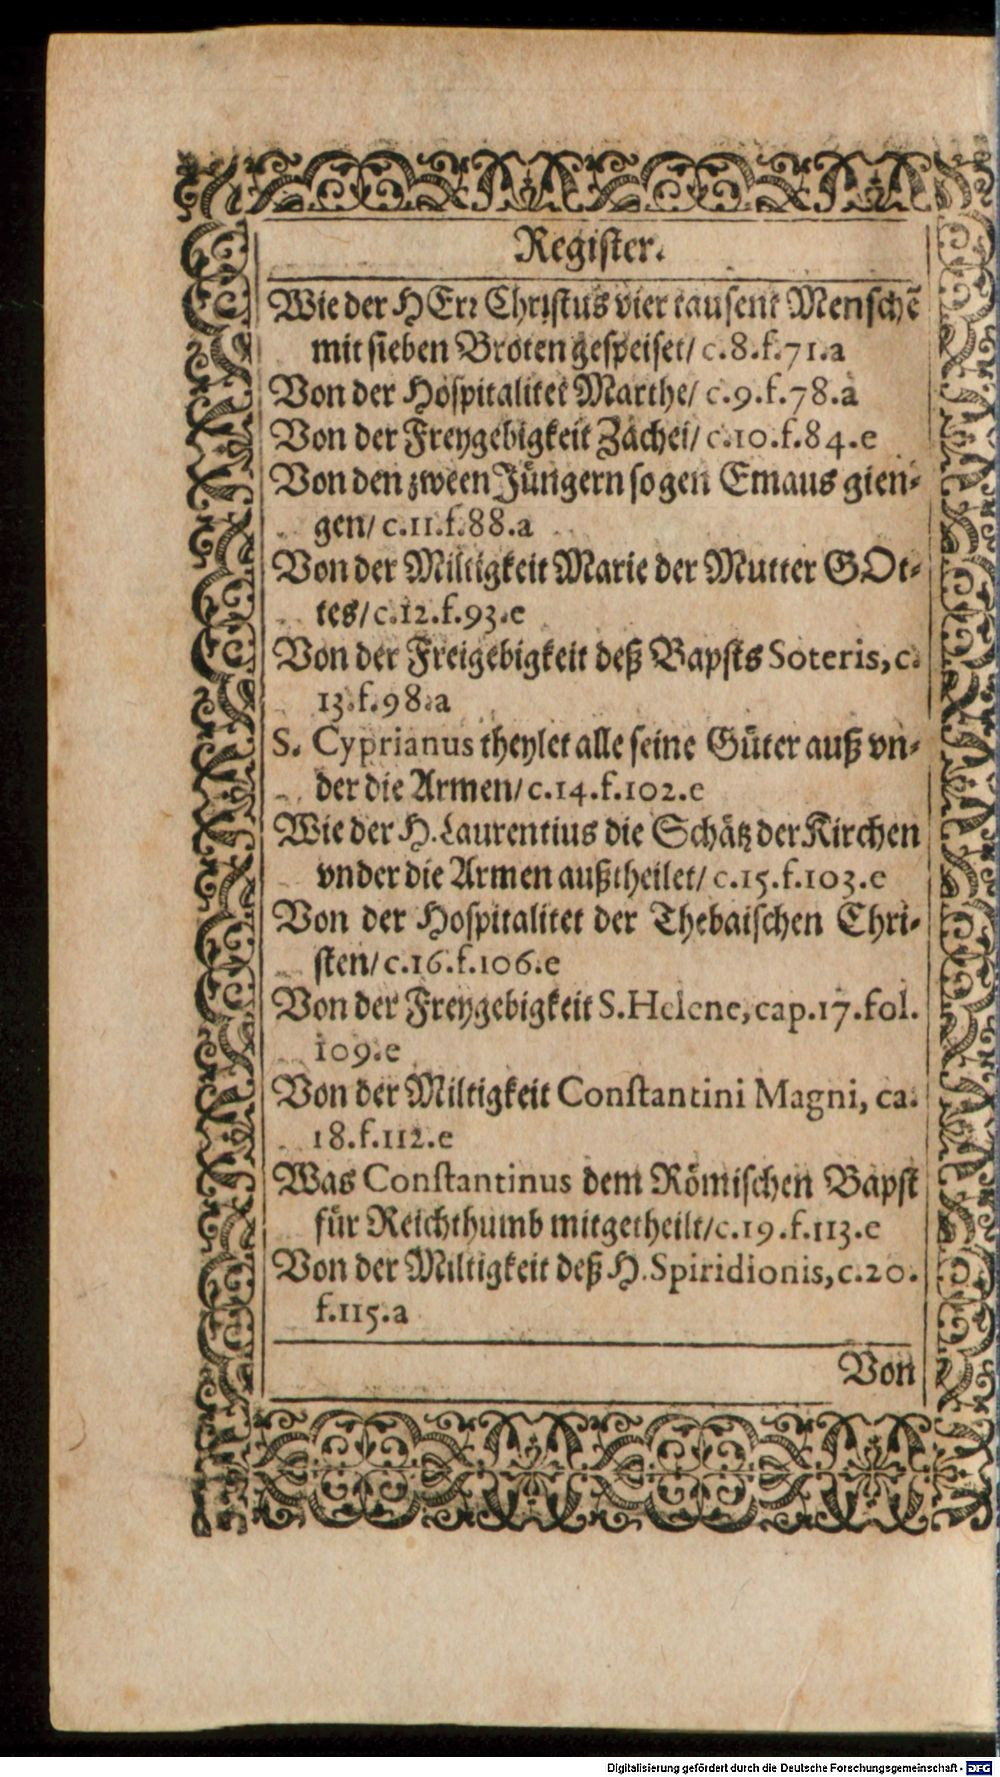 Register.
Wie der HErr Christus vier tausent Menschẽ
mit sieben Broten gespeiset/ c.8.f.71.a
Von der Hospitalitet Marthe/ c.9.f.78.a
Von der Freygebigkeit Zachei/ c.10.f.84.e
Von den zween Jüngern so gen Emaus gien-
gen/ c.11.f.88.a
Von der Miltigkeit Marie der Mutter GOt-
tes/ c.12.f.93.e
Von der Freigebigkeit deß Bapsts Soteris, c.
13.f.98.a
S. Cyprianus theylet alle seine Güter auß vn-
der die Armen/ c.14.f.102.e
Wie der H. Laurentius die Schätz der Kirchen
vnder die Armen außtheilet/ c.15.f.103.e
Von der Hospitalitet der Thebaischen Chri-
sten/ c.16.f.106.e
Von der Freygebigkeit S. Helene, cap.17.fol.
109.e
Von der Miltigkeit Constantini Magni, ca.
18.f.112.e
Was Constantinus dem Römischen Bapst
für Reichthumb mitgetheilt/ c.19.f.113.e
Von der Miltigkeit deß H. Spiridionis, c.20.
f.115.a
Von
Digitalisierung gefördert durch die Deutsche Forschungsgemeinschaft - DFG